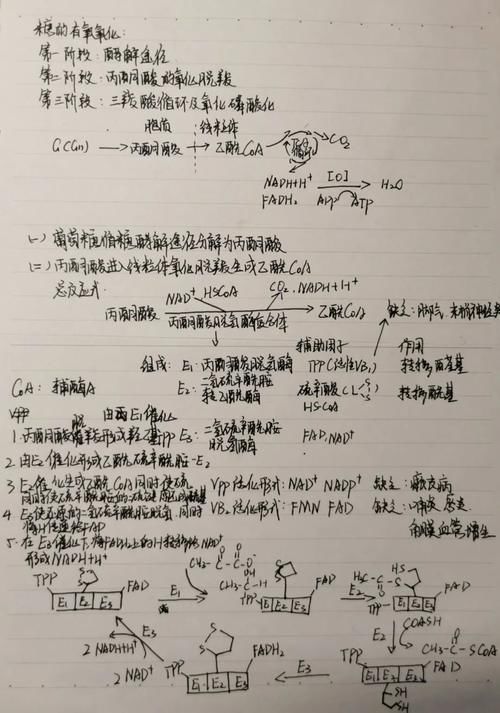 糖的有氧氧化:
第一阶段:酵解途径
第二阶段:丙酮酸的氧化脱羧
第三阶段:三羧酸循环及氧化磷酸化
胞质 线粒体
G(Gn) → 丙酮酸 → 乙酰CoA → TCA循环 → CO₂
NADH+H⁺ [O] → H₂O
FADH₂ ADP ATP
(一) 葡萄糖循糖酵解途径分解为丙酮酸
(二) 丙酮酸进入线粒体氧化脱羧生成乙酰CoA
总反应式
NAD⁺ HSCoA CO₂, NADH+H⁺
丙酮酸 → 乙酰CoA 缺乏: 脚气, 末梢神经炎
丙酮酸脱氢酶复合体
辅助因子 作用
组成: E₁: 丙酮酸脱氢酶 TPP(活性VB₁) 转移醛基
CoA: 辅酶A E₂: 二氢硫辛酰胺转乙酰酶 硫辛酸(L S S) 转移酰基
HSCoA
E₃: 二氢硫辛酰胺脱氢酶 FAD, NAD⁺
由E₁催化
1. 丙酮酸脱羧形成羟乙基TPP
2. 由E₂催化形成乙酰硫辛酰胺-E₂
3. E₂催化生成乙酰CoA同时使硫辛酰胺上的二硫键还原 VPP活化形式: NAD⁺ NADP⁺ 缺乏: 癞皮病
4. E₃使还原的二氢硫辛酰胺脱氢,同时将H传递给FAD VB₂活化形式: FMN FAD 缺乏: 口角炎 唇炎
角膜血管增生
5. 在E₃催化下,将FADH₂上的H转移给NAD⁺
形成NADH+H⁺
TPP S S FAD E₁ E₂ E₃
E₁
CH₃-C-C-O⁻ O O
CO₂
CH₃-C-H OH TPP S S FAD E₁ E₂ E₃
E₂
CH₃-C-S O HS TPP FAD E₁ E₂ E₃
E₂ COASH
CH₃-C-SCOA O
TPP FAD E₁ E₂ E₃ SH SH
E₃
TPP S S FADH₂ E₁ E₂ E₃
E₃
2 NADH+H⁺
2 NAD⁺